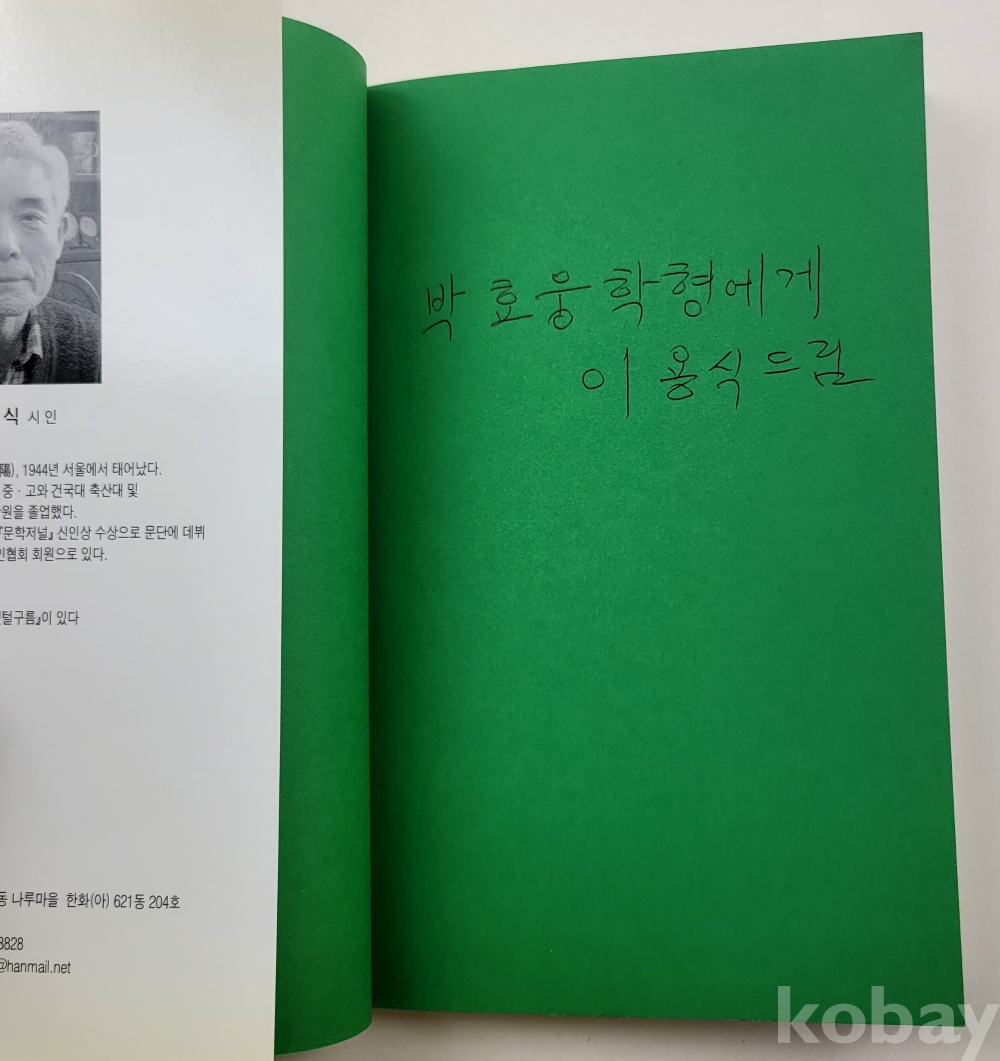 식 시인
陽), 1944년 서울에서 태어났다.
중 · 고와 건국대 축산대 및
원을 졸업했다.
『문학저널』 신인상 수상으로 문단에 데뷔
인협회 회원으로 있다.
털구름』이 있다
동 나루마을 한화(아) 621동 204호
8828
@hanmail.net
박효웅학형에게
이용식드림
kobay